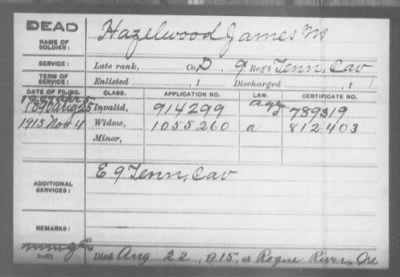 DEAD
NAME OF SOLDIER:
Hazelwood James M
SERVICE:
Late rank, Co. D, 9 Reg't Tenn, Cav
TERM OF SERVICE:
Enlisted , 1 Discharged , 1
DATE OF FILING. CLASS. APPLICATION NO. LAW. CERTIFICATE NO.
Invalid, 914299 789319
1915 Nov 4 Widow, 1055260 a 812403
Minor,
ADDITIONAL SERVICES:
E 9 Tenn, Cav
REMARKS:
Died Aug 22, 1915, at Rogue River, Ore